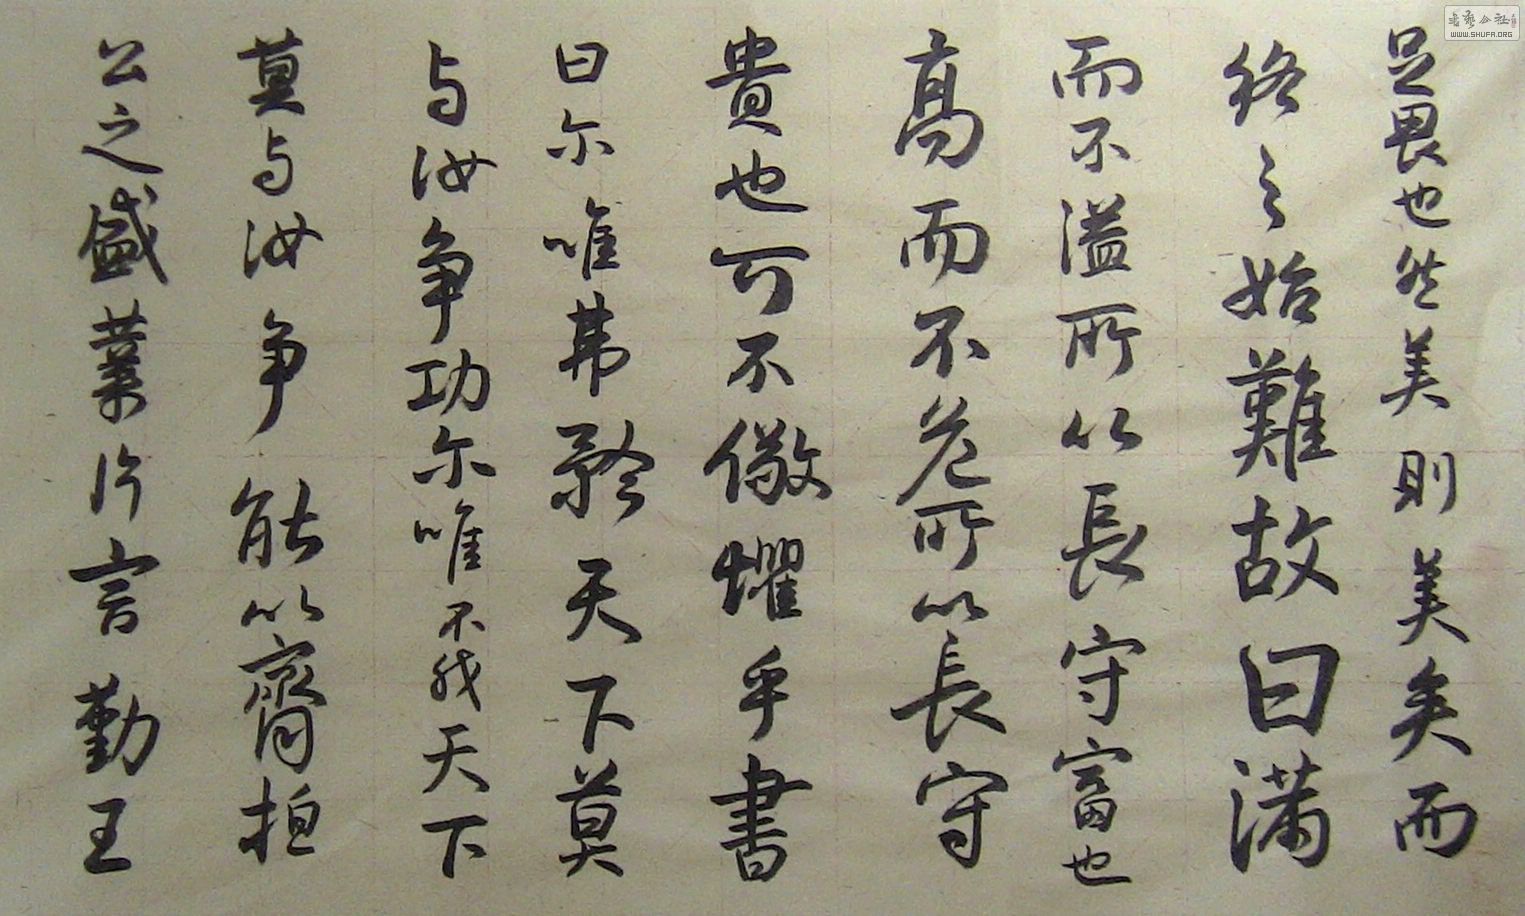 足畏也然美則美矣而
終之始難故曰滿
而不溢所以長守富也
高而不危所以長守
貴也可不儆懼乎書
曰尔唯弗矜天下莫
与汝争功尔唯不伐天下
莫与汝争能以齊桓
公之盛業片言勤王
書藝公社
WWW.SHUFA.ORG